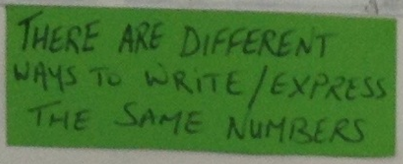 THERE ARE DIFFERENT
WAYS TO WRITE/EXPRESS
THE SAME NUMBERS